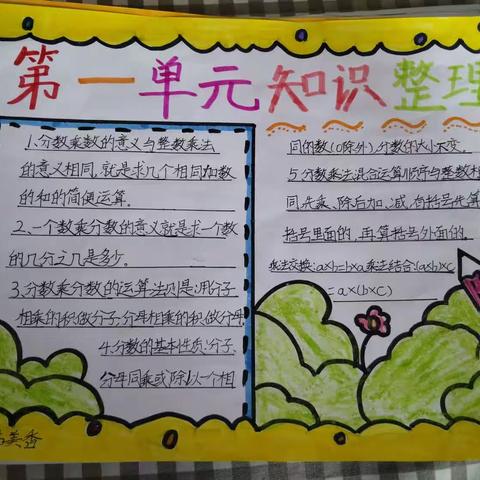 第一单元知识整理
1、分数乘数的意义与整数乘法
的意义相同,就是求几个相同加数
的和的简便运算。
2、一个数乘分数的意义就是求一个数
的几分之几是多少。
3、分数乘分数的运算法则是:用分子
相乘的积做分子,分母相乘的积做分母。
4、分数的基本性质:分子、
分母同乘或除以一个相
同的数(0除外)分数的大小不变。
5、分数乘法混合运算顺序与整数相
同,先乘、除后加、减,有括号先算
括号里面的,再算括号外面的。
乘法交换:a×b=b×a乘法结合:(a×b)×c
=a×(b×c)
美香